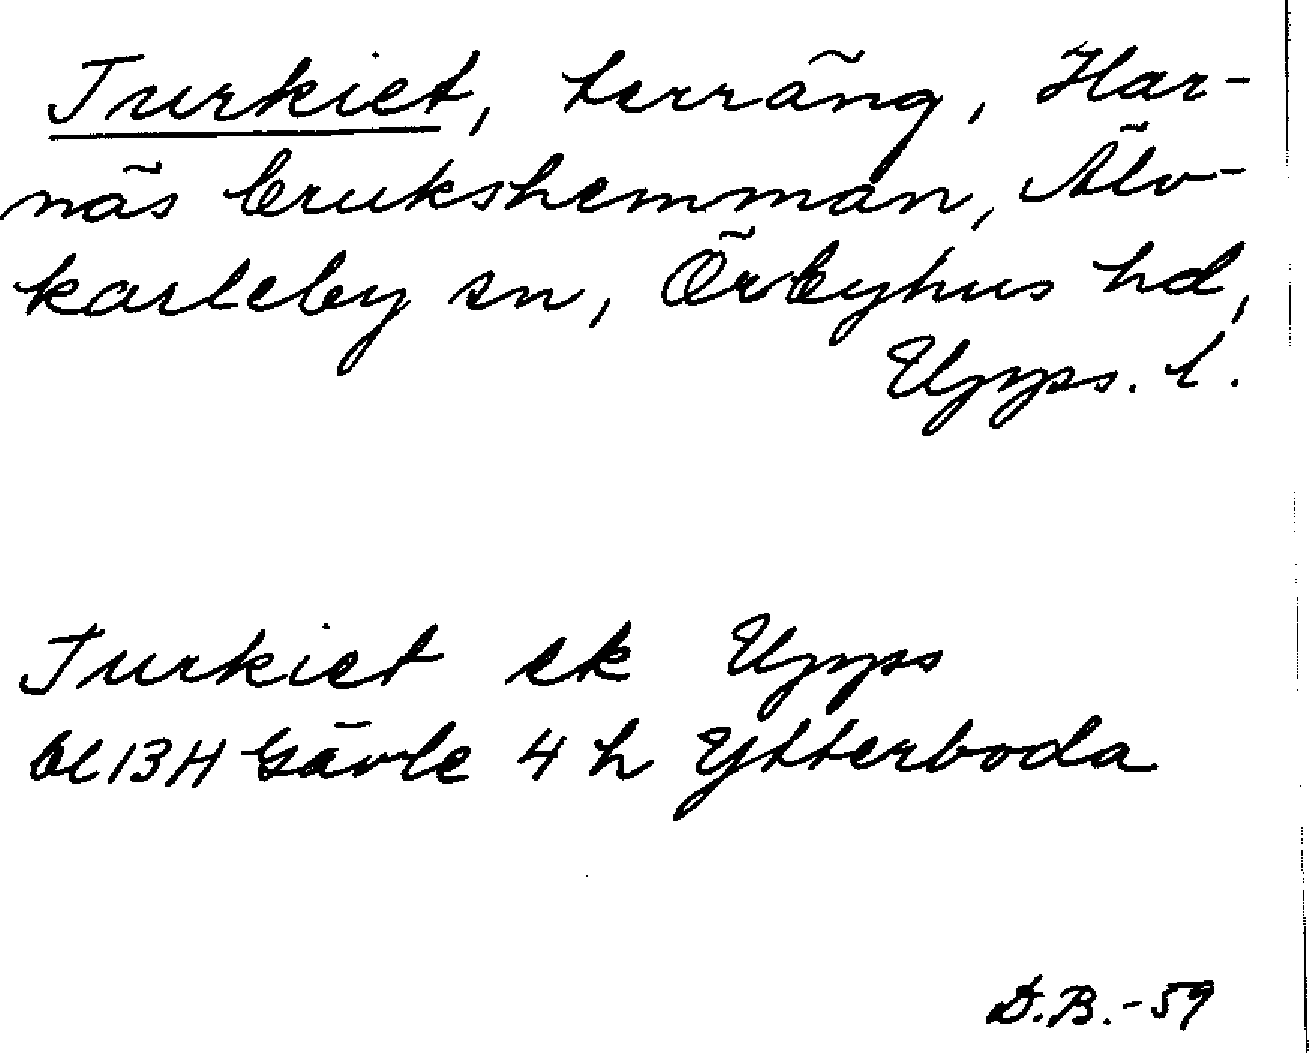 Turkiet, terräng, Har-
näs brukshemman, Älv-
karleby sn, Örbyhus hd,
Upps. l.
Turkiet ek Upps
bl 13H Gävle 4 h Ytterboda
D.B.-59